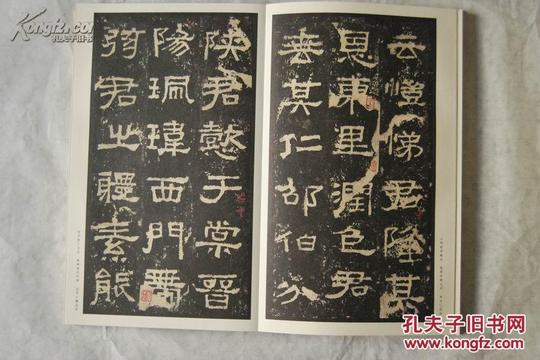 Kongfz.com
孔夫子旧书
云愷悌君隆其
恩東里潤色君
垂其仁邵伯分
陝君懿于棠晉
陽珮瑋西門帶
弦君之體素能
孔夫子旧书网
www.kongfz.com